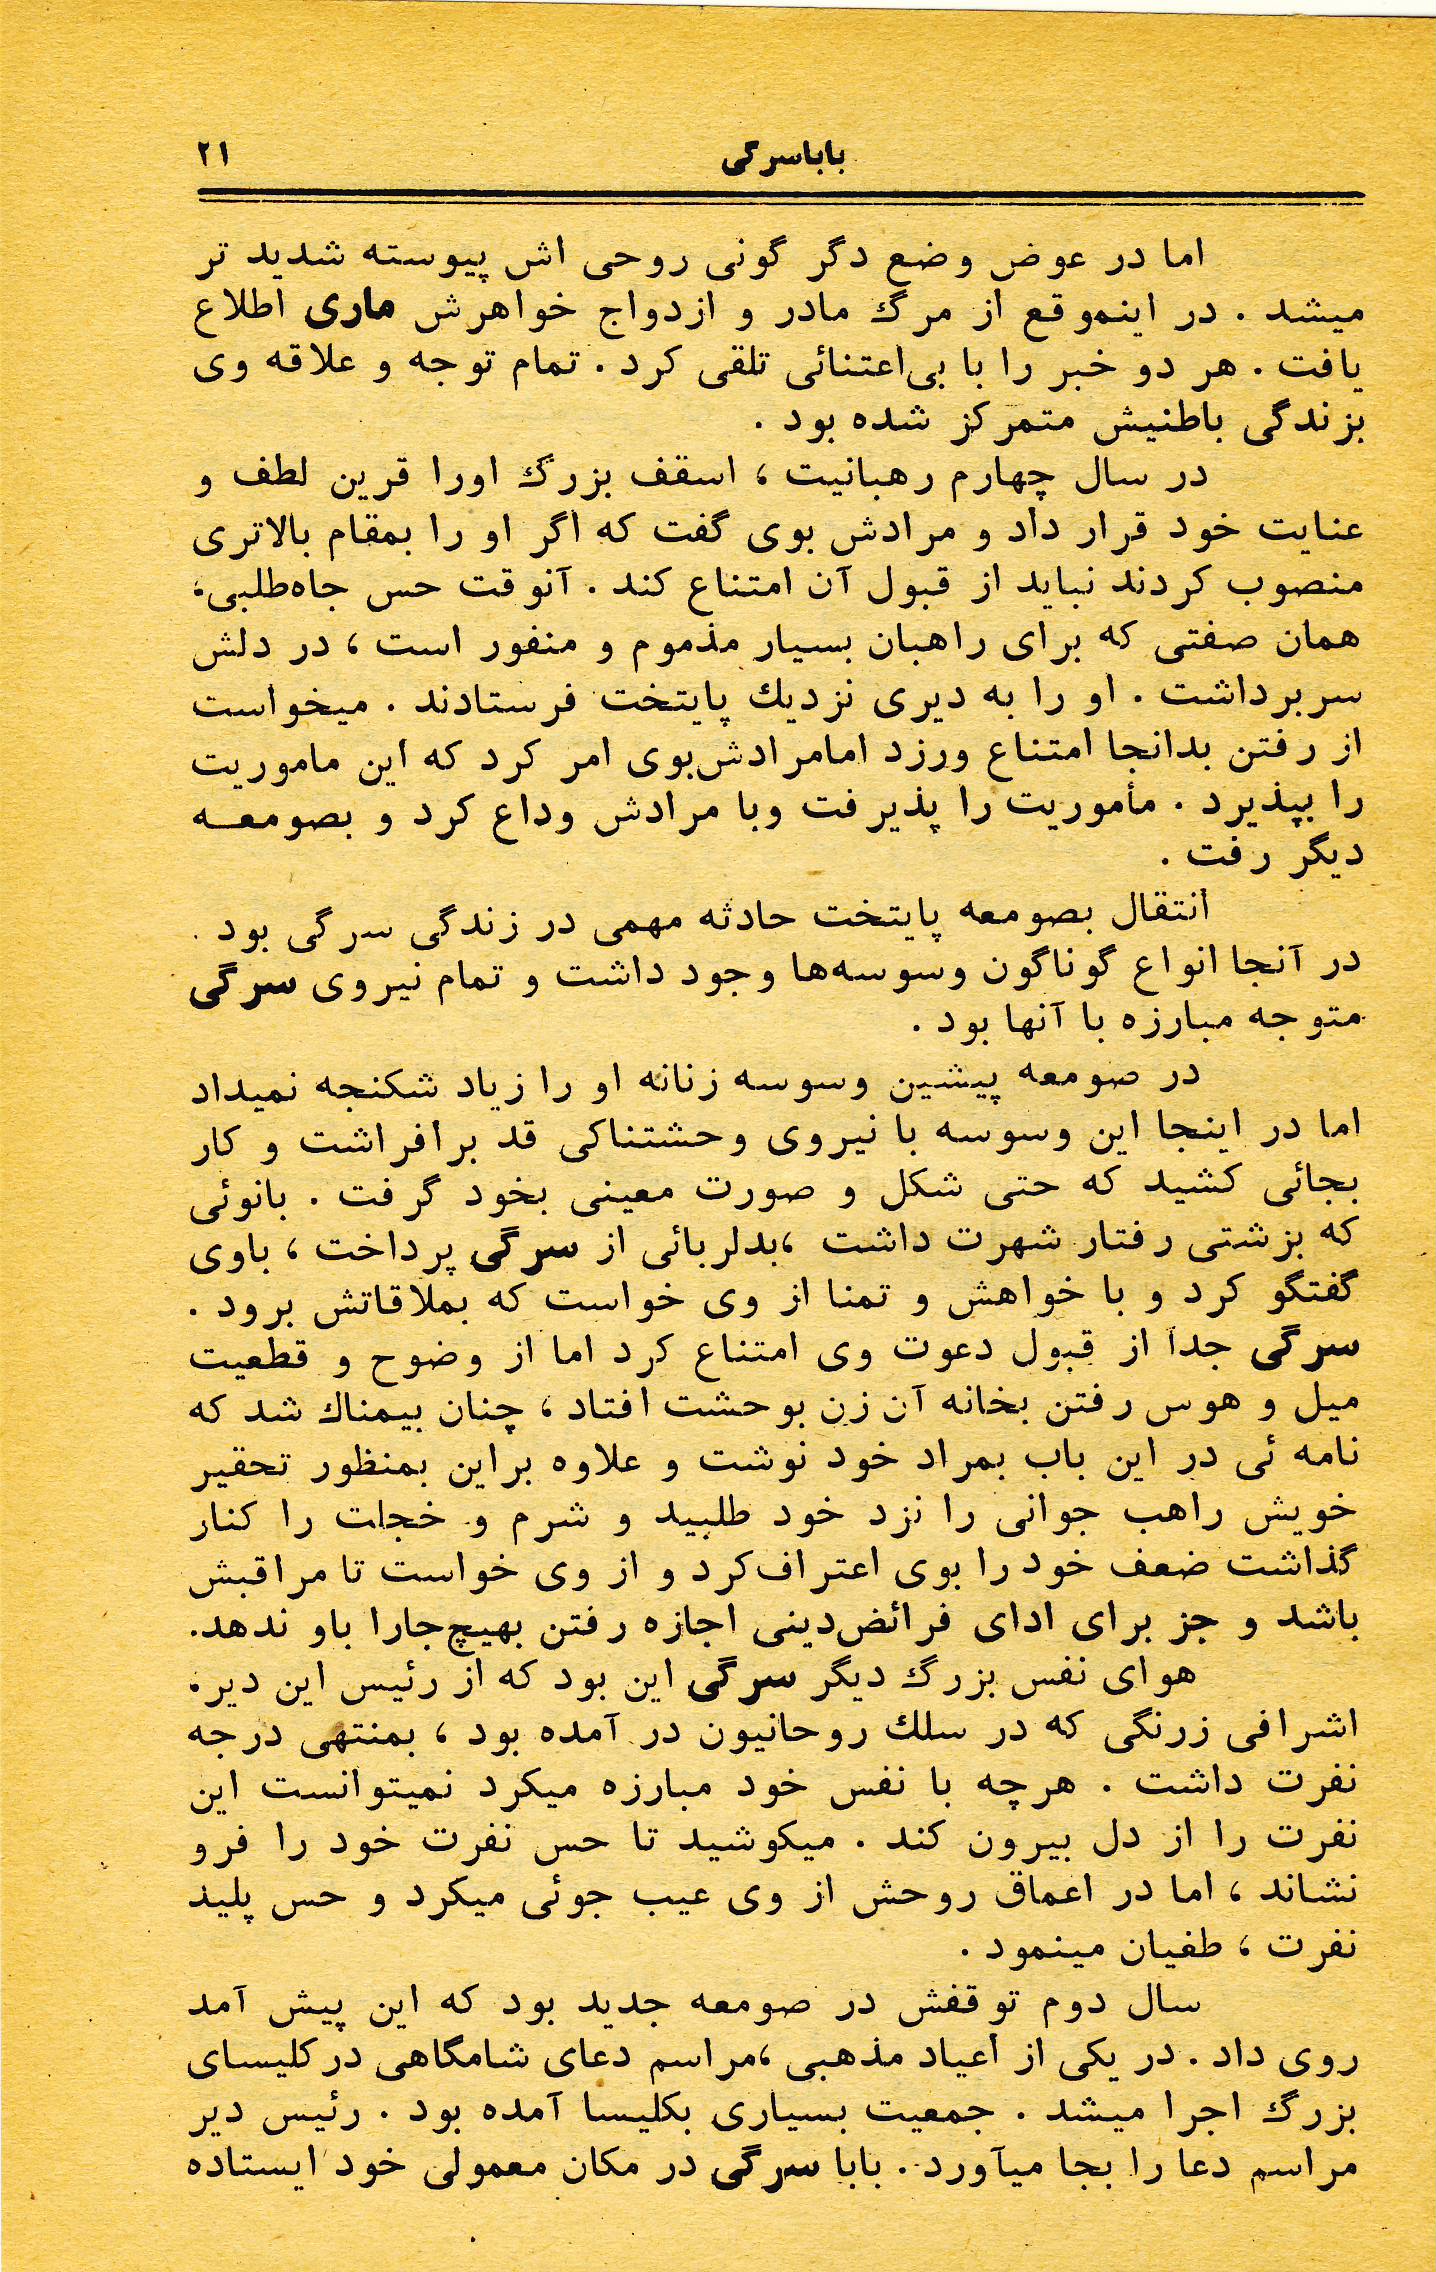 باباسرگی ۲۱
اما در عوض وضع دگر گونی روحی اش پیوسته شدید تر
میشد . در اینموقع از مرگ مادر و ازدواج خواهرش ماری اطلاع
یافت . هر دو خبر را با بی‌اعتنائی تلقی کرد . تمام توجه و علاقه وی
بزندگی باطنیش متمرکز شده بود .
در سال چهارم رهبانیت ، اسقف بزرگ اورا قرین لطف و
عنایت خود قرار داد و مرادش بوی گفت که اگر او را بمقام بالاتری
منصوب کردند نباید از قبول آن امتناع کند . آنوقت حس جاه‌طلبی،
همان صفتی که برای راهبان بسیار مذموم و منفور است ، در دلش
سربرداشت . او را به دیری نزدیك پایتخت فرستادند . میخواست
از رفتن بدانجا امتناع ورزد امامرادش‌بوی امر کرد که این ماموریت
را بپذیرد . مأموریت را پذیرفت وبا مرادش وداع کرد و بصومعــه
دیگر رفت .
انتقال بصومعه پایتخت حادثه مهمی در زندگی سرگی بود .
در آنجا انواع گوناگون وسوسه‌ها وجود داشت و تمام نیروی سرگی
متوجه مبارزه با آنها بود .
در صومعه پیشین وسوسه زنانه او را زیاد شکنجه نمیداد
اما در اینجا این وسوسه با نیروی وحشتناکی قد برافراشت و کار
بجائی کشید که حتی شکل و صورت معینی بخود گرفت . بانوئی
که بزشتی رفتار شهرت داشت ،بدلربائی از سرگی پرداخت ، باوی
گفتگو کرد و با خواهش و تمنا از وی خواست که بملاقاتش برود .
سرگی جدا از قبول دعوت وی امتناع کرد اما از وضوح و قطعیت
میل و هوس رفتن بخانه آن زن بوحشت افتاد ، چنان بیمناك شد که
نامه ئی در این باب بمراد خود نوشت و علاوه براین بمنظور تحقیر
خویش راهب جوانی را نزد خود طلبید و شرم و خجلت را کنار
گذاشت ضعف خود را بوی اعتراف‌کرد و از وی خواست تا مراقبش
باشد و جز برای ادای فرائض‌دینی اجازه رفتن بهیچ‌جارا باو ندهد.
هوای نفس بزرگ دیگر سرگی این بود که از رئیس این دیر.
اشرافی زرنگی که در سلك روحانیون در آمده بود ، بمنتهی درجه
نفرت داشت . هرچه با نفس خود مبارزه میکرد نمیتوانست این
نفرت را از دل بیرون کند . میکوشید تا حس نفرت خود را فرو
نشاند ، اما در اعماق روحش از وی عیب جوئی میکرد و حس پلید
نفرت ، طغیان مینمود .
سال دوم توقفش در صومعه جدید بود که این پیش آمد
روی داد . در یکی از اعیاد مذهبی ،مراسم دعای شامگاهی درکلیسای
بزرگ اجرا میشد . جمعیت بسیاری بکلیسا آمده بود . رئیس دیر
مراسم دعا را بجا میآورد . بابا سرگی در مکان معمولی خود ایستاده